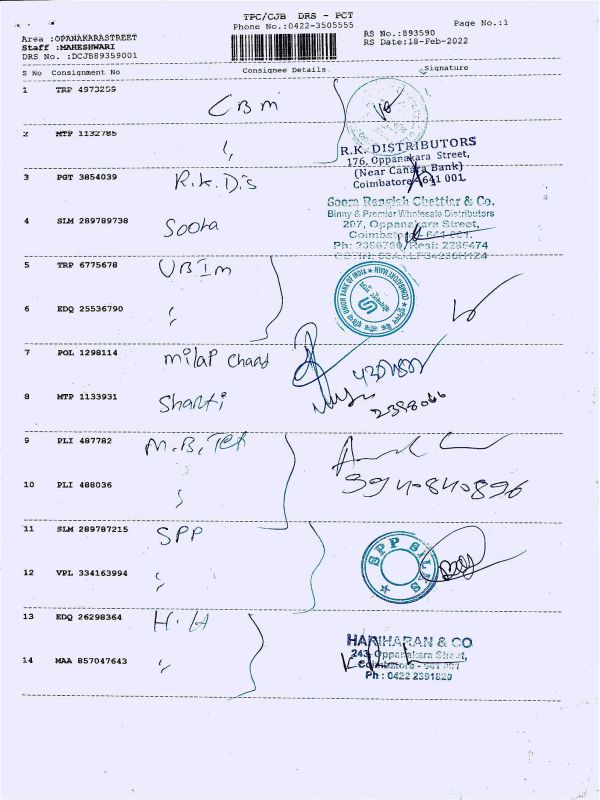 TPC/CJB DRS - PCT
Phone No.:0422-3505555
Page No.:1
Area :OPANAKARASTREET
Staff :MAHESHWARI
DRS No. :DCJB89359001
RS No.:893590
RS Date:18-Feb-2022
S No Consignment No Consignee Details Signature
1 TRP 4973259 CBM
2 MTP 1132785 "
R.K. DISTRIBUTORS
176, Oppanakara Street,
(Near Canara Bank)
Coimbatore - 641 001.
3 PGT 3854039 R.K. Dis
Soora Rangish Chettiar & Co.
Binny & Premier Wholesale Distributors
207, Oppanakara Street,
Coimbatore - 641 001.
Ph: 2396760, Resi: 2285474
4 SLM 289789738 Soora
5 TRP 6775678 UBIM
UNION BANK OF INDIA
6 EDQ 25536790 "
7 POL 1298114 milap chand
8 MTP 1133931 Shanti
2398066
9 PLI 487782 M.B, Tex
10 PLI 488036 "
11 SLM 289787215 SPP
SPP SILKS
12 VPL 334163994 "
13 EDQ 26298364 H.H
HARIHARAN & CO
243, Oppanakara Street,
Coimbatore - 641 001
Ph : 0422 2391820
14 MAA 857047643 "